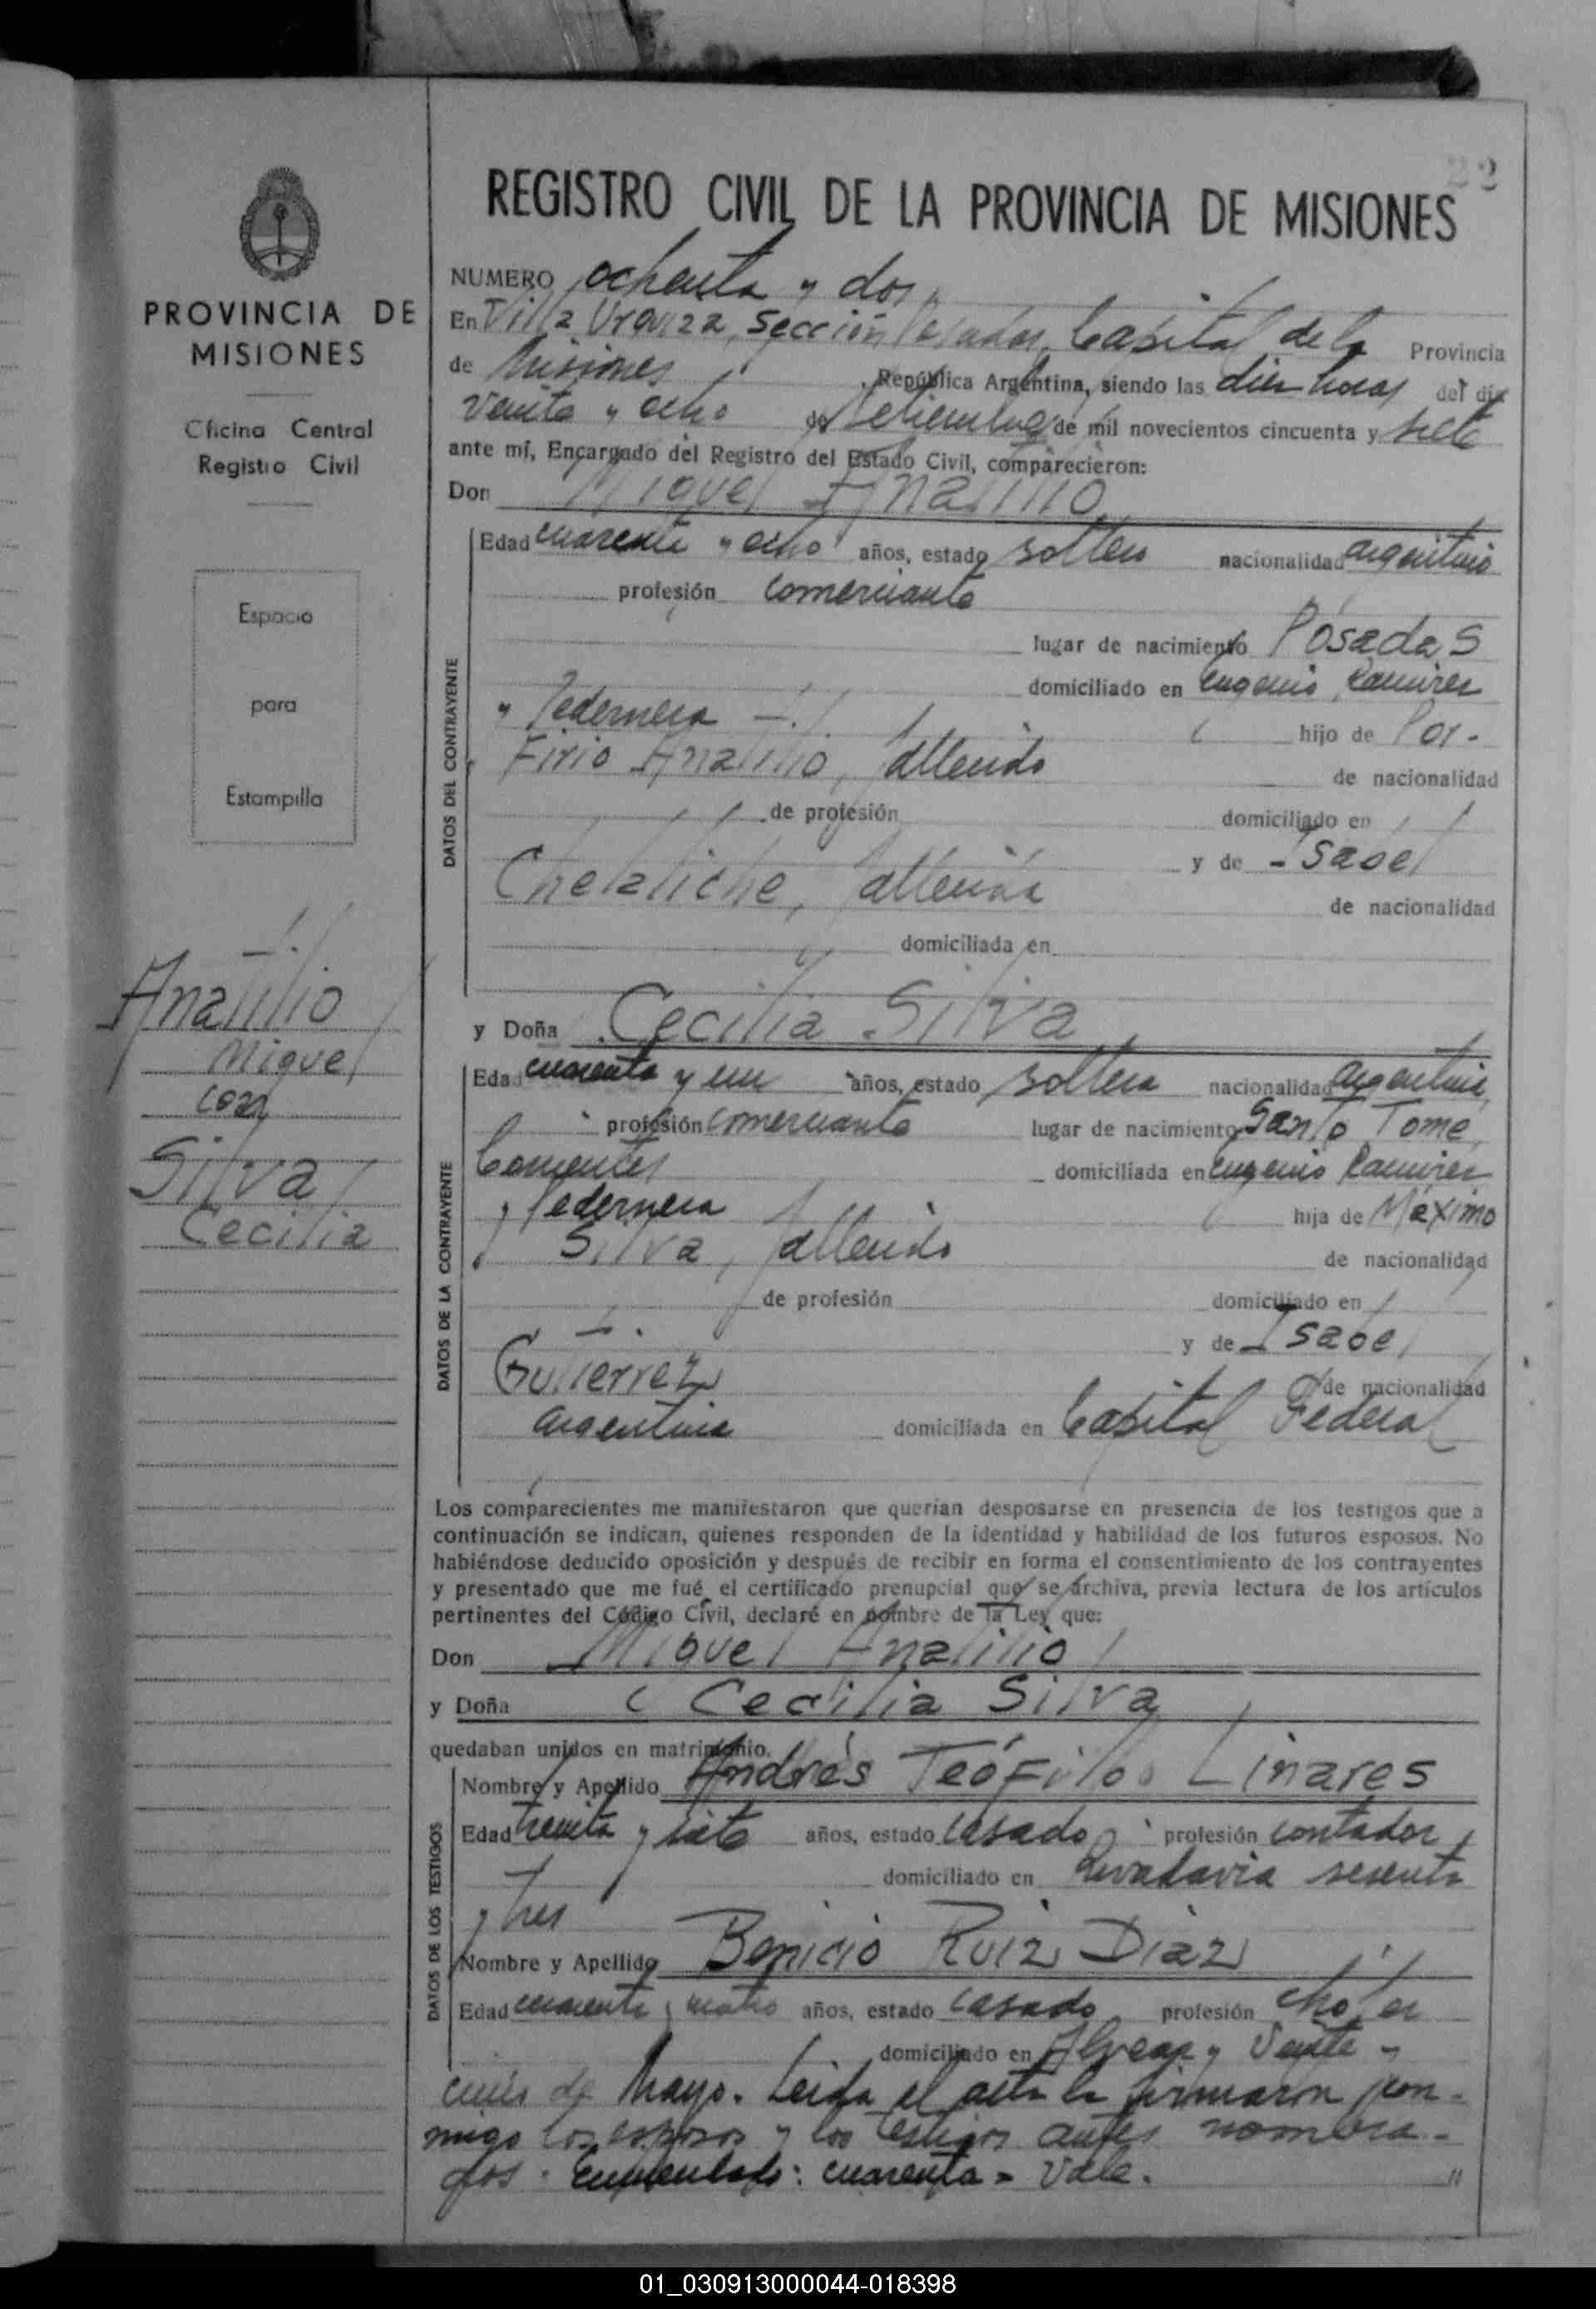 22
REGISTRO CIVIL DE LA PROVINCIA DE MISIONES
PROVINCIA DE
MISIONES
Oficina Central
Registro Civil
Espacio
para
Estampilla
Analilio
Miguel
con
Silva
Cecilia
NUMERO ochenta y dos
En Villa Urquiza, Sección Posadas, Capital de la Provincia
de Misiones República Argentina, siendo las diez horas del día
veinte y ocho de Setiembre de mil novecientos cincuenta y siete
ante mí, Encargado del Registro del Estado Civil, comparecieron:
Don Miguel Analilio
DATOS DEL CONTRAYENTE
Edad cuarenta y ocho años, estado soltero nacionalidad argentino
profesión comerciante
lugar de nacimiento Posadas
domiciliado en Eugenio Ramirez
y Pedernera hijo de Por-
firio Analilio, fallecido de nacionalidad
de profesión domiciliado en
y de Isabel
Chelaliche, fallecida de nacionalidad
domiciliada en
y Doña Cecilia Silva
DATOS DE LA CONTRAYENTE
Edad cuarenta y un años, estado soltera nacionalidad argentina,
profesión comerciante lugar de nacimiento Santo Tome,
Corrientes domiciliada en Eugenio Ramirez
y Pedernera hija de Máximo
Silva, fallecido de nacionalidad
de profesión domiciliado en
y de Isabel
Gutierrez de nacionalidad
argentina domiciliada en Capital Federal
Los comparecientes me manifestaron que querían desposarse en presencia de los testigos que a
continuación se indican, quienes responden de la identidad y habilidad de los futuros esposos. No
habiéndose deducido oposición y después de recibir en forma el consentimiento de los contrayentes
y presentado que me fué el certificado prenupcial que se archiva, previa lectura de los artículos
pertinentes del Código Civil, declaré en nombre de la Ley que:
Don Miguel Analilio
y Doña Cecilia Silva
quedaban unidos en matrimonio.
DATOS DE LOS TESTIGOS
Nombre y Apellido Andrés Teófilo Linares
Edad treinta y siete años, estado casado profesión contador
domiciliado en Rivadavia sesenta
y tres
Nombre y Apellido Benicio Ruiz Diaz
Edad cuarenta y cuatro años, estado casado profesión chofer
domiciliado en Alvear y Veinte y
cinco de Mayo. Leida el acta la firmaron con-
migo los esposos y los testigos antes nombra-
dos. Enmendado: cuarenta = Vale.
01_030913000044-018398